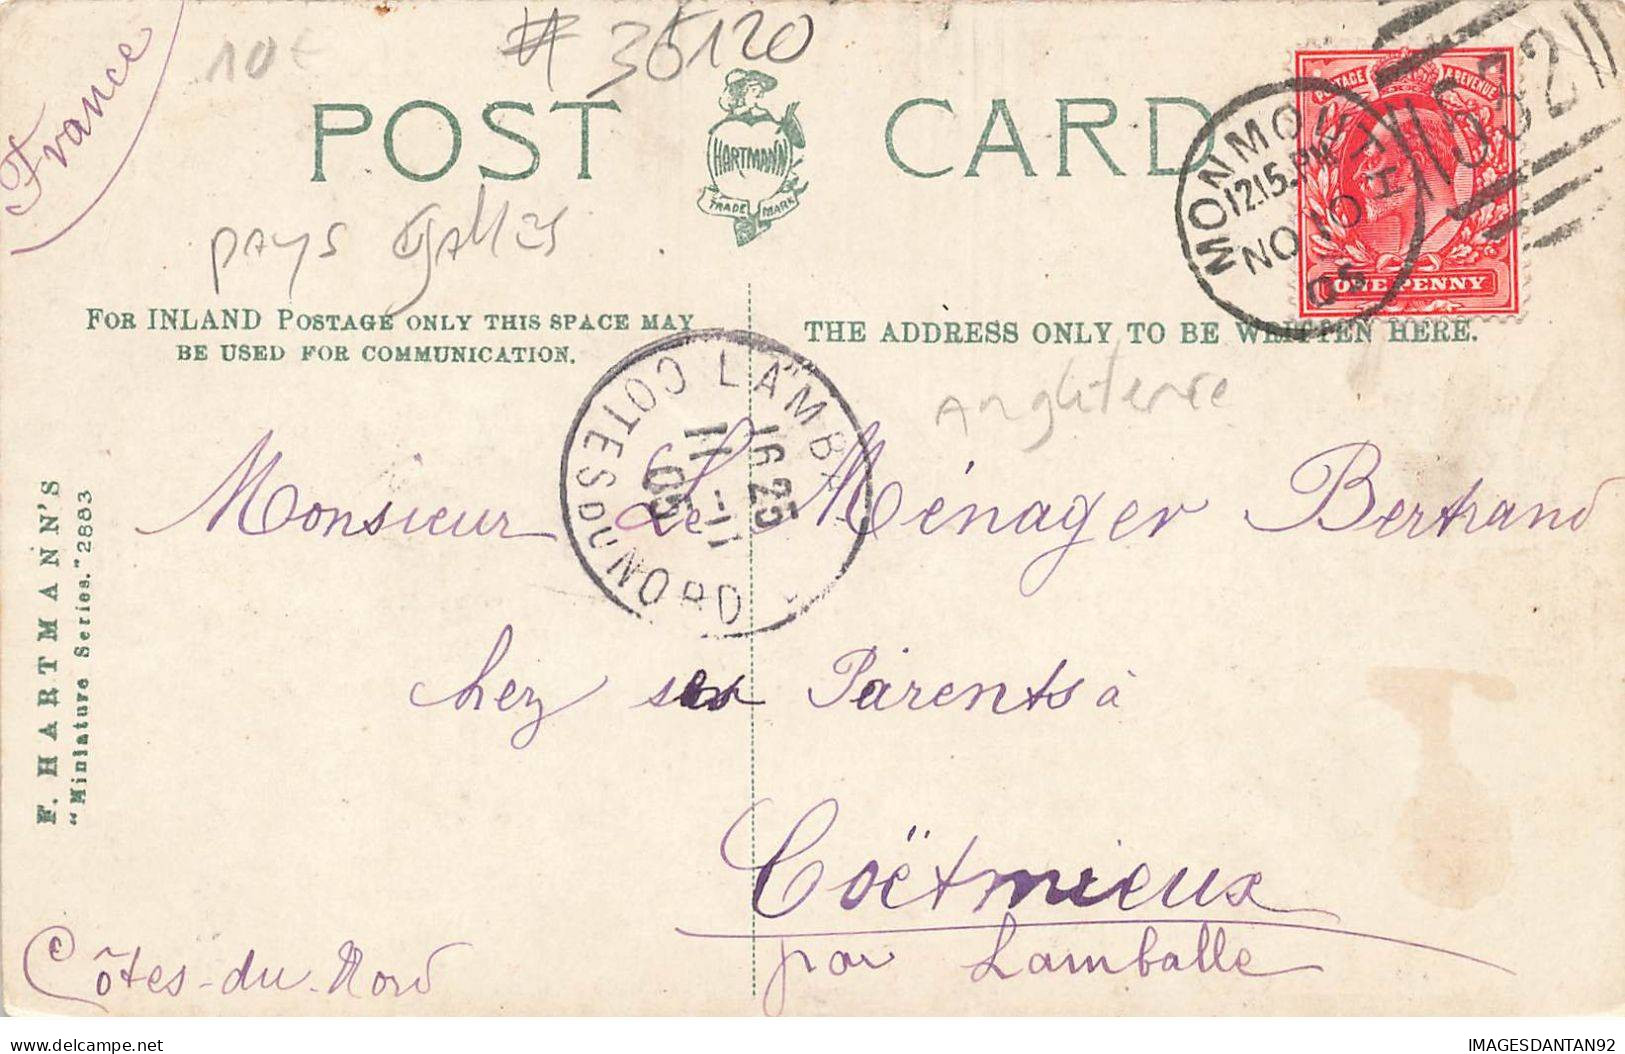 France
10€
# 35120
POST CARD
HARTMANN
TRADE MARK
pays Galles
POSTAGE & REVENUE
ONE PENNY
MONMOUTH
12.15 PM
NO 10
05
532
FOR INLAND POSTAGE ONLY THIS SPACE MAY
BE USED FOR COMMUNICATION.
THE ADDRESS ONLY TO BE WRITTEN HERE.
Angleterre
LAMBA
COTES DU NORD
16 25
11 - 11
05
Monsieur Le Ménager Bertrand
chez ses Parents à
Coëtmieux
par Lamballe
Côtes-du-Nord
F. HARTMANN'S
"Miniature Series." 2883
delcampe.net
IMAGESDANTAN92